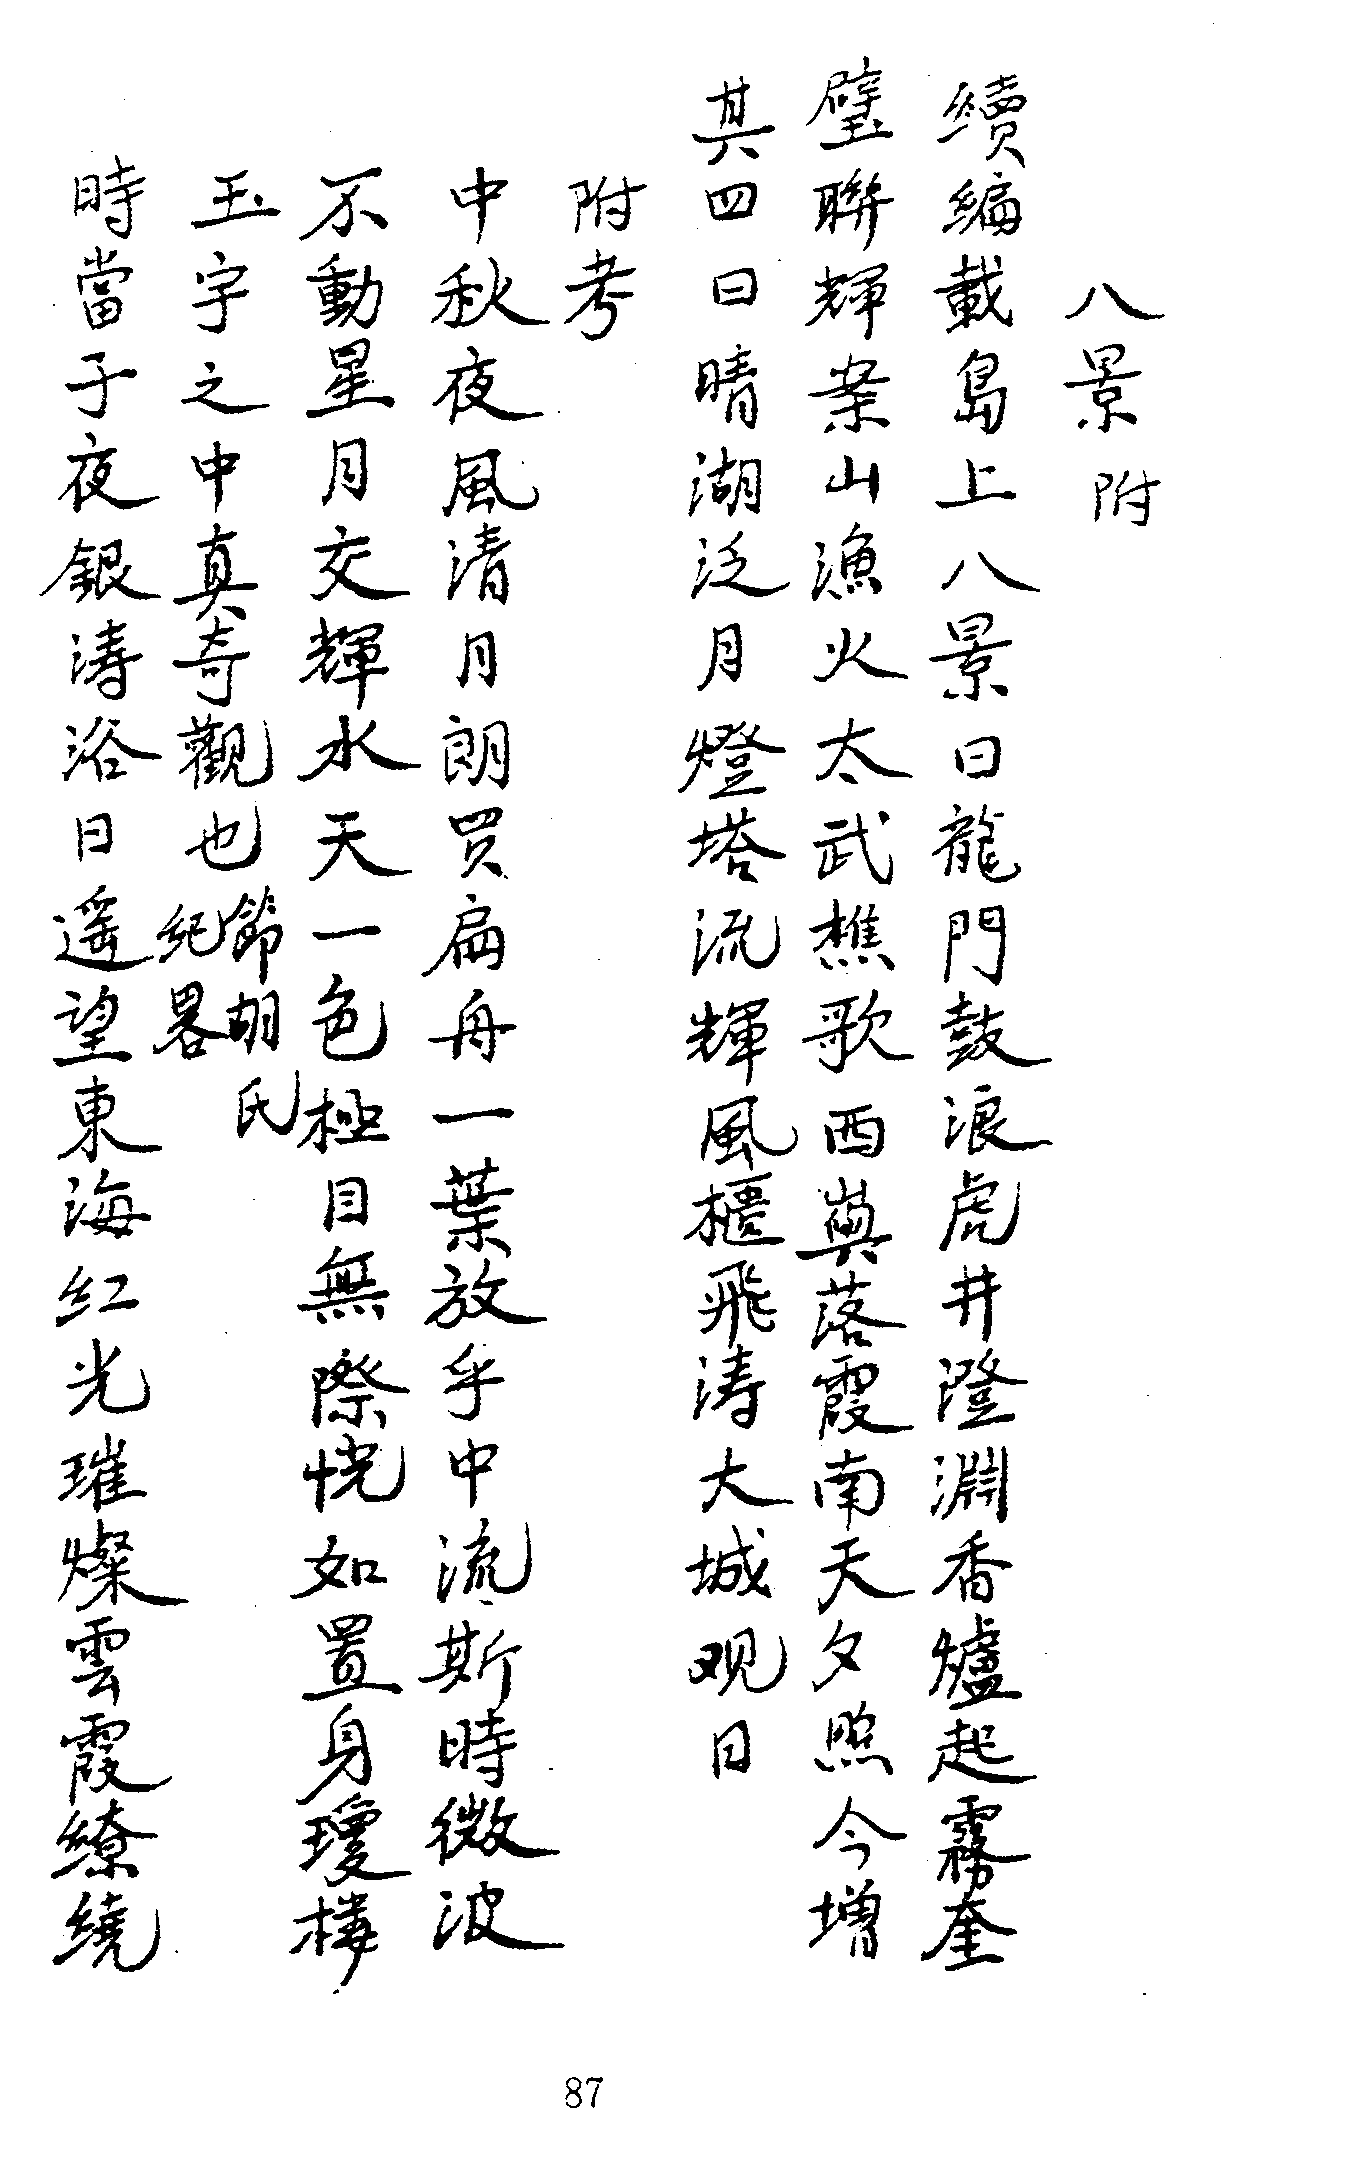 八景附
續編載島上八景曰龍門鼓浪虎井澄淵香爐起霧奎
璧聯輝案山漁火太武樵歌西嶼落霞南天夕照今增
其四曰晴湖泛月燈塔流輝風櫃飛涛大城观日
附考
中秋夜風清月朗買扁舟一葉放乎中流斯時微波
不動星月交輝水天一色極目無際恍如置身瓊樓
玉宇之中真奇觀也節胡氏紀畧
時當子夜銀涛浴日遥望東海紅光璀燦雲霞繚繞
87